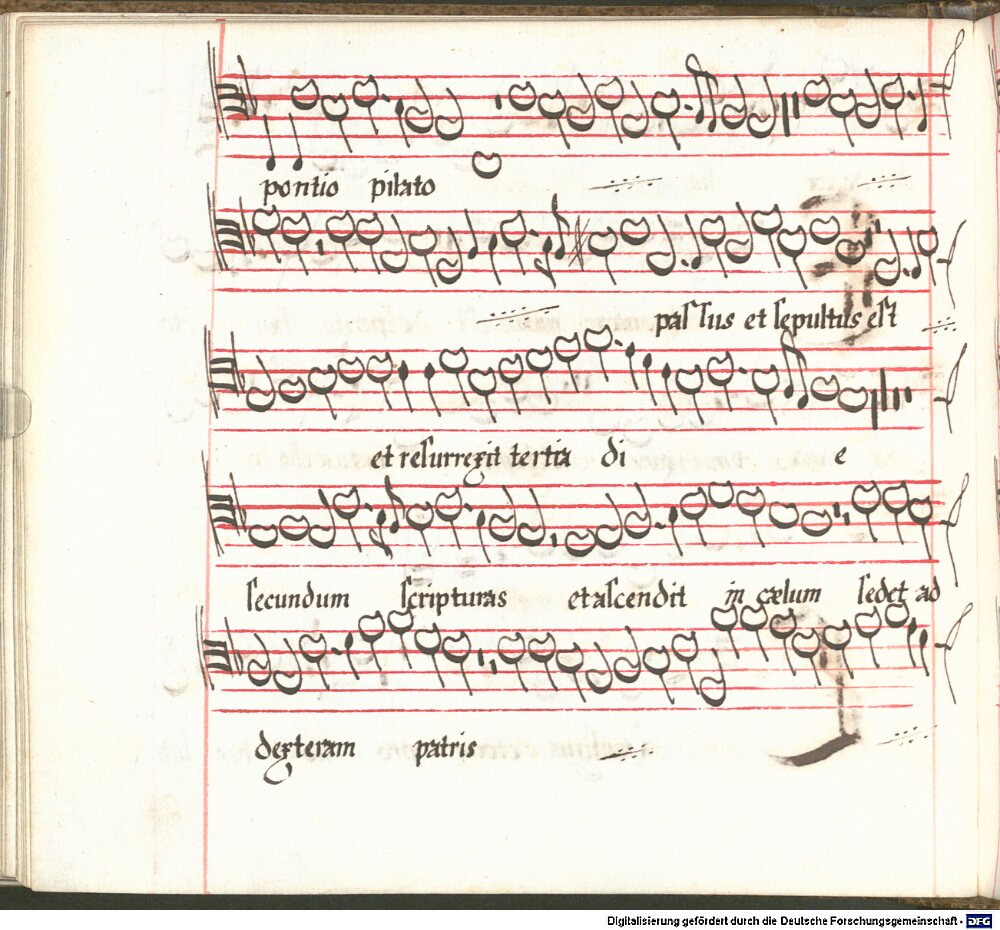 pontio pilato
paſſus et ſepultus eſt
et reſurrexit tertia di e
ſecundum ſcripturas et aſcendit in cælum ſedet ad
dexteram patris
Digitalisierung gefördert durch die Deutsche Forschungsgemeinschaft - DFG